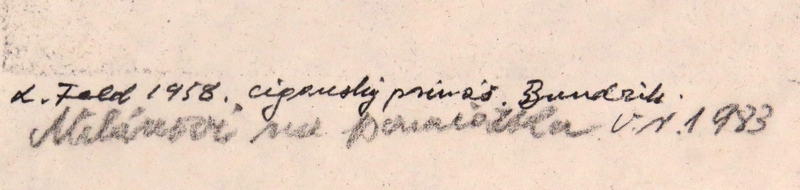 L. Feld 1958. cigánsky primáš. Bundzik.
Milánovi na pamiatku V. V. 1983